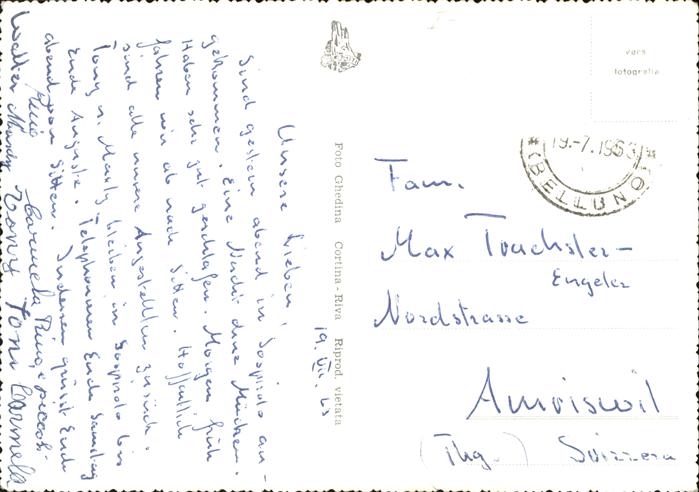 19. VII. 63
Unsere Lieben,
Sind gestern abend in Sospirolo an-
gekommen. Eine Nacht ohne Mücken.
Haben sehr gut geschlafen. Morgen früh
fahren wir ab nach Sitten. Hoffentlich
sind alle unsere Angestellten zurück.
Tony u. Marly bleiben in Sospirolo bis
Ende Auguste. Telephonieren Ende Samstag
abend von Sitten. Indessen grüsst Euch
Walter
Carmela
Tony Toni Carmela
Foto Ghedina Cortina - Riva Riprod. vietata
vera
fotografia
19.-7.1963
BELLUNO
Fam.
Max Trachsler-
Engeler
Nordstrasse
Amriswil
(Thg.) Svizzera